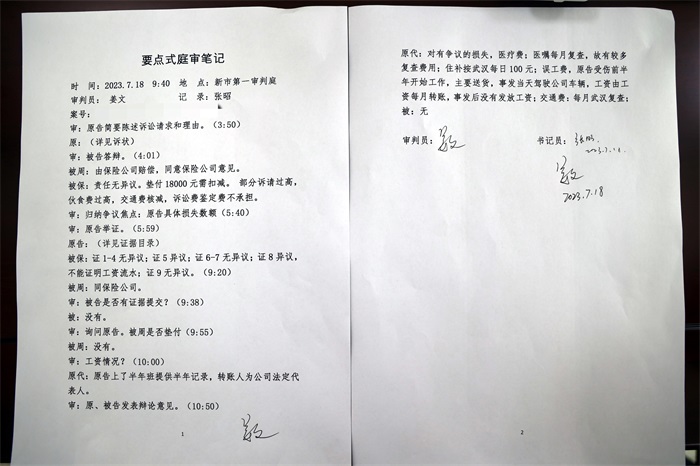 要点式庭审笔记
时 间：2023.7.18 9:40 地 点：新市第一审判庭
审判员： 姜文 记 录：张昭
案号：
审：原告简要陈述诉讼请求和理由。（3:50）
原：（详见诉状）
审：被告答辩。（4:01）
被周：由保险公司赔偿，同意保险公司意见。
被保：责任无异议。垫付 18000 元需扣减。 部分诉请过高，
伙食费过高，交通费核减，诉讼费鉴定费不承担。
审：归纳争议焦点：原告具体损失数额（5:40）
审：原告举证。（5:59）
原告：（详见证据目录）
被保：证 1-4 无异议；证 5 异议；证 6-7 无异议；证 8 异议，
不能证明工资流水；证 9 无异议。（9:20）
被周：同保险公司。
审：被告是否有证据提交？（9:38）
被：没有。
审：询问原告。被周是否垫付（9:55）
被周：没有。
审：工资情况？（10:00）
原代：原告上了半年班提供半年记录，转账人为公司法定代
表人。
审：原、被告发表辩论意见。（10:50）
1
原代：对有争议的损失，医疗费：医嘱每月复查，故有较多
复查费用；住补按武汉每日 100 元；误工费，原告受伤前半
年开始工作，主要送货，事发当天驾驶公司车辆，工资由工
资每月转账，事发后没有发放工资；交通费：每月武汉复查；
被：无
审判员： 书记员：
2023.7.18
2